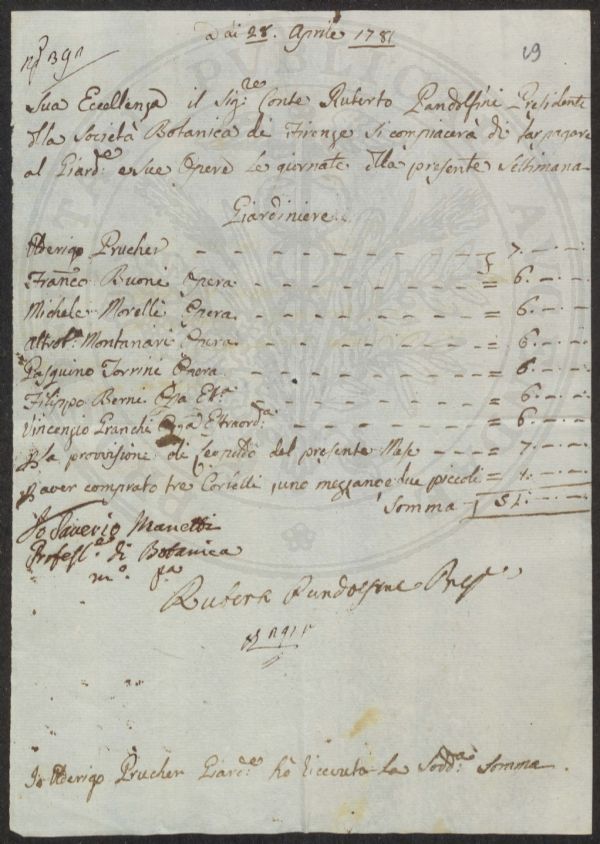 a di 28. Aprile 1781
19
Sua Eccellenza il Sig.re Conte Ruberto Pandolfini Presidente
della Società Botanica di Firenze si compiacerà di far pagare
al Giard.e e sue Opere le giornate della presente Settimana
Giardiniere
Oderigo Prucher 7. — . —
Franc.o Buoni Opera = 6. — . —
Michele Morelli Opera = 6. — . —
Montanari Opera = 6. — . —
Pasquino Torrini Opera = 6. — . —
Filippo Berni Opa Et.a = 6. — . —
Vincenzio Granchi Opa Etraord.a = 6. — . —
la provisione di Leopoldo del presente Mese = 7. — . —
aver comprato tre Cortelli, uno mezzano e due piccoli =
Somma 51. — . —
Io Saverio Manetti
Profess.e di Botanica
m.o p.a
Pandolfini Pres.
Io Oderigo Prucher Giard.e hò ricevuto la Sodd.a Somma.
PUBLICA